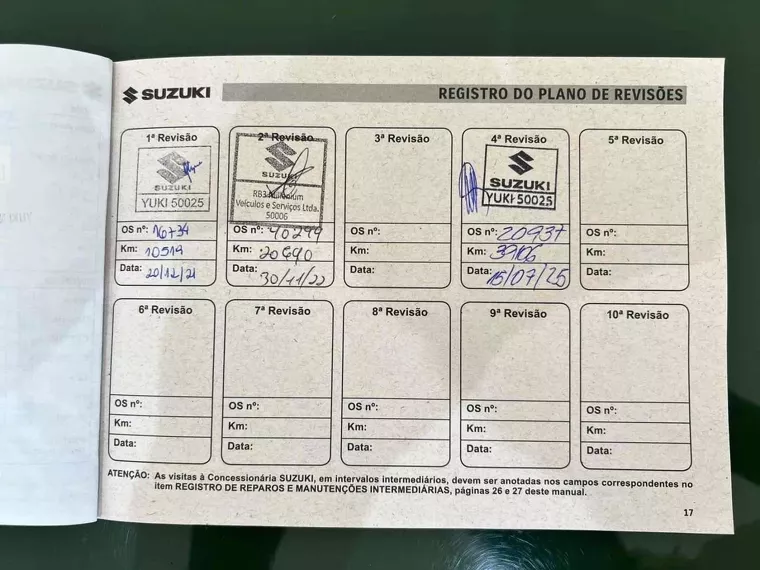 SUZUKI REGISTRO DO PLANO DE REVISÕES
1ª Revisão
SUZUKI
YUKI 50025
OS nº: 16734
Km: 10519
Data: 20/12/21
2ª Revisão
SUZUKI
RB3 Millenium
Veículos e Serviços Ltda.
50006
OS nº: 40299
Km: 20690
Data: 30/11/22
3ª Revisão
OS nº:
Km:
Data:
4ª Revisão
SUZUKI
YUKI 50025
OS nº: 20937
Km:
Data: 15/07/25
5ª Revisão
OS nº:
Km:
Data:
6ª Revisão
OS nº:
Km:
Data:
7ª Revisão
OS nº:
Km:
Data:
8ª Revisão
OS nº:
Km:
Data:
9ª Revisão
OS nº:
Km:
Data:
10ª Revisão
OS nº:
Km:
Data:
ATENÇÃO: As visitas à Concessionária SUZUKI, em intervalos intermediários, devem ser anotadas nos campos correspondentes no
item REGISTRO DE REPAROS E MANUTENÇÕES INTERMEDIÁRIAS, páginas 26 e 27 deste manual.
17